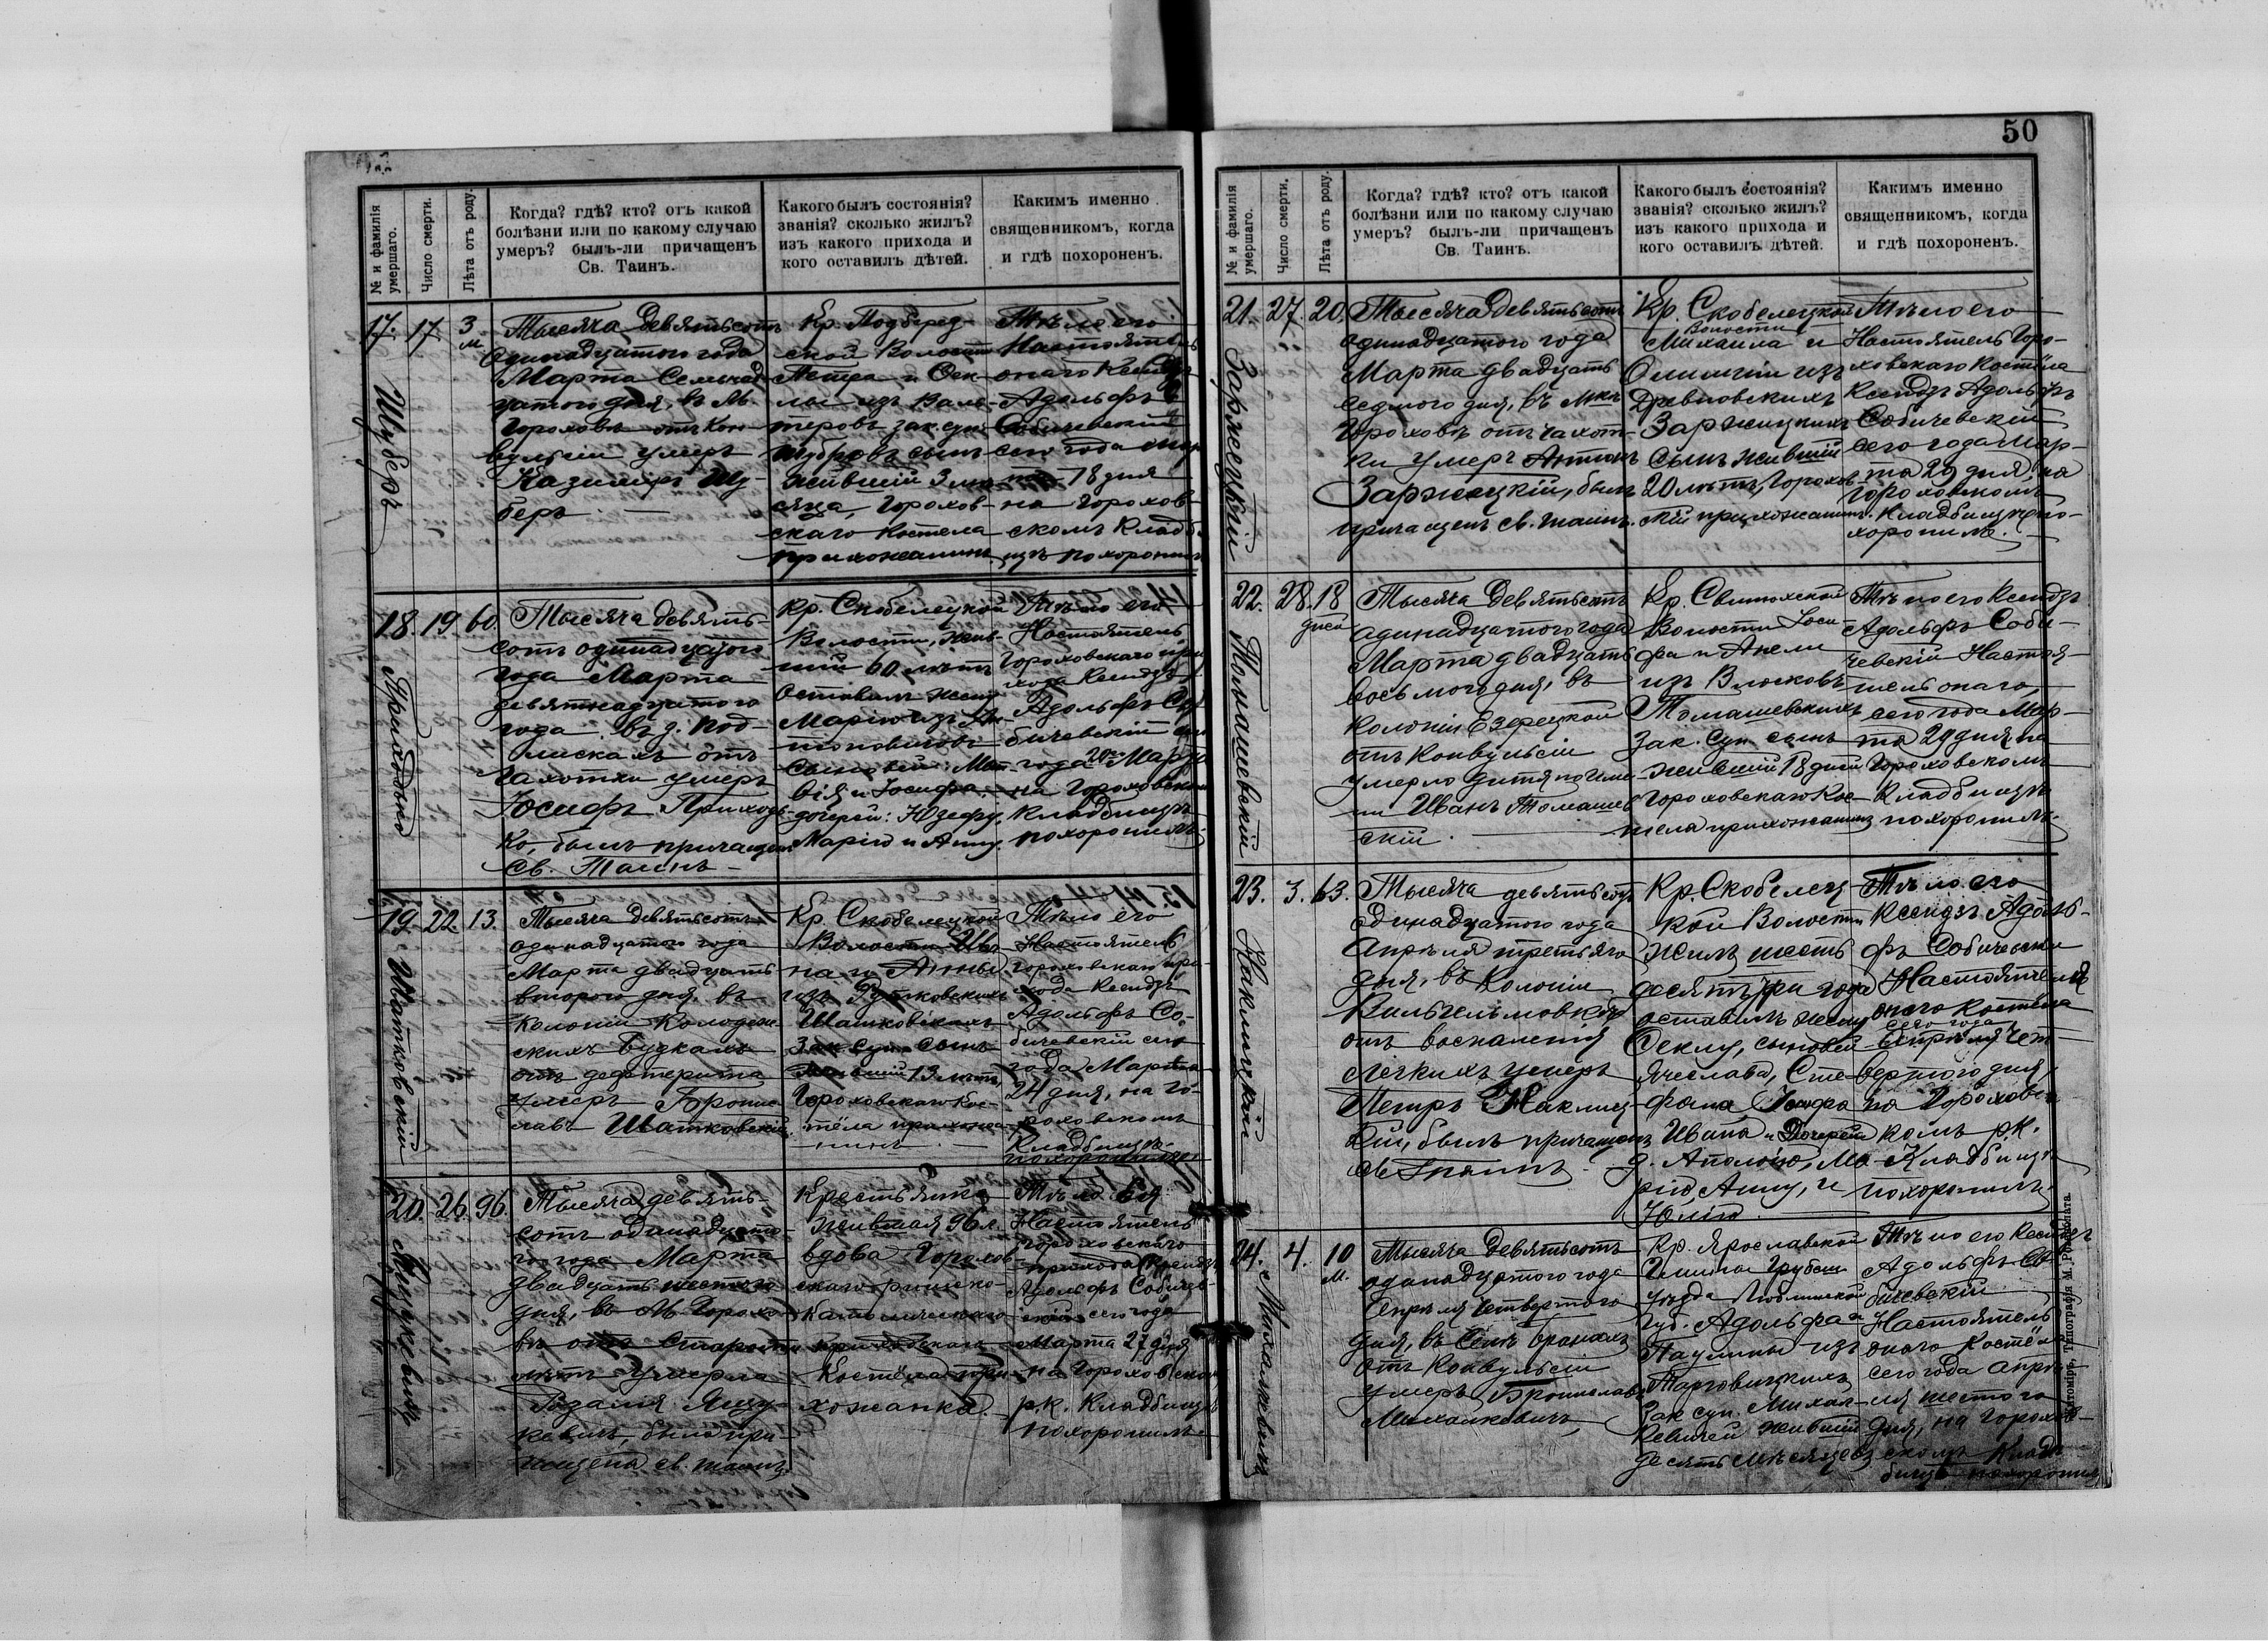 № и фамилія умершаго.
Число смерти.
Лѣта отъ роду.
Когда? гдѣ? кто? отъ какой
болѣзни или по какому случаю
умеръ? былъ-ли причащенъ
Св. Таинъ.
Какого былъ состоянія?
званія? сколько жилъ?
изъ какого прихода и
кого оставилъ дѣтей.
Какимъ именно
священникомъ, когда
и гдѣ похороненъ.
17.
Шуберъ
17
3
м
Тысяча девятьсотъ
одинадцатого года
Марта Семнад-
цатого дня, въ М.
Гороховѣ отъ Кон-
вульсіи умеръ
Казиміръ Шу-
беръ
Кр. Подберез-
ской Волости
изъ Валь-
теровъ зак. суп.
Шуберовъ сынъ
живвшій 3 мѣ-
сяца, Горохов-
скаго Костела
прихожанинъ.
Тѣло его
Настоятель
онаго Ксендзъ
Адольфъ
Собичевскій
сего года Мар
та 18 дня
на Горохов-
скомъ Кладб-
ищѣ похоронилъ
18.
Приходько
19
60.
Тысяча девять-
сотъ одинадцатого
года Марта
девятнадцатого
года въ д. Под-
лискахъ отъ
чахотки умеръ
Іосифъ Приходь-
ко, былъ причащен
Св. Таинъ
Кр. Скобелецкой
Волости, жив-
шій 60 лѣтъ
оставилъ жену
Марію изъ
сыновей: Мат-
вія и Іосифа,
дочерей: Юзефу,
Марію и Анну.
Тѣло его
Настоятель
Гороховскаго при
хода Ксендзъ
Адольфъ Со
бичевскій сего
года 20го Марта
на Гороховском
Кладбищѣ
похоронилъ.
19.
Шатковскій
22.
13.
Тысяча девятьсотъ
одинадцатого года
Марта двадцать
второго дня, въ
колоніи Колодеж-
скихъ Будкахъ
отъ дефтерита
умеръ Бронис-
лавъ Шатковскій.
Кр. Скобелецкой
Волости Ива-
на и Анны
изъ Рутковскихъ
Шатковскихъ
Зак. Суп. Сынъ
живвшій 13 лѣтъ,
Гороховскаго Кос-
тёла прихожа-
нинъ
Тѣло его
Настоятель
Гороховскаго при-
хода Ксендзъ
Адольфъ Со-
бичевскій сего
года Марта
24 дня, на Го-
роховскомъ
Кладбищѣ
похоронилъ.
20.
Яцукевичъ
26.
96.
Тысяча девять-
сотъ одинадцата-
го года Марта
двадцать шестого
дня, въ М. Горохо-
въ отъ Старости
лѣтъ умерла
Розалія Яцу-
кевичъ, была при-
чащена св. таинъ.
Крестьянка
жившая 96 л.
вдова Горохов-
скаго римско-
католическаго
приходскаго
Костёла при-
хожанка.
Тѣло Ея
Настоятель
Гороховскаго
прихода Ксендзъ
Адольфъ Собичев-
скій сего года
Марта 27 дня
на Гороховском
р.к. Кладбищѣ
похоронилъ.
50
№ и фамилія умершаго.
Число смерти.
Лѣта отъ роду.
Когда? гдѣ? кто? отъ какой
болѣзни или по какому случаю
умеръ? былъ-ли причащенъ
Св. Таинъ.
Какого былъ состоянія?
званія? сколько жилъ?
изъ какого прихода и
кого оставилъ дѣтей.
Какимъ именно
священникомъ, когда
и гдѣ похороненъ.
21.
Заржецкій
27.
20.
Тысяча девятьсотъ
одинадцатого года
Марта двадцать
седмого дня, въ Мкѣ
Гороховѣ отъ чахот-
ки умеръ Антонъ
Заржецкій, былъ
причащенъ св. таинъ.
Кр. Скобелецкой
Волости
Михаила и
изъ
Древновскихъ
Заржецкихъ
Сынъ живвшій
20 лѣтъ, Горохов-
скій прихожанинъ.
Тѣло его
Настоятель Горо-
ховскаго Костёла
Ксендзъ Адольфъ
Собичевскій
сего года Мар-
та 29 дня, на
Гороховскомъ
Кладбищѣ по-
хоронилъ.
22.
Томашевскій
28.
18
дней
Тысяча девятьсотъ
одинадцатого года
Марта двадцать
восьмого дня, въ
колоніи Езерецкой
отъ Конвульсіи
умерло дитя по име-
ни Иванъ Томашев
скій.
Кр. Свинюхской
Волости Іоси-
фа и Анели
изъ Влосковъ
Томашевскихъ
Зак. Суп. сынъ
живвшій 18 дней
Гороховскаго Кос-
тела прихожанинъ
Тѣло его Ксендзъ
Адольфъ Соби-
чевскій Настоя-
тель онаго,
сего года Мар-
та 29 дня на
Гороховскомъ
Кладбищѣ
похоронилъ.
23.
Наклицкій
3.
63.
Тысяча девятьсотъ
одинадцатого года
Апрѣля третьяго
дня, въ Колоніи
Вильгельмовкѣ
отъ воспаленія
лёгкихъ умеръ
Петръ Наклиц-
кій, былъ причащенъ
св. таинъ.
Кр. Скобелец-
кой Волости
жилъ шесть
десятъ три года
оставилъ жену
Теклу, сыновей
Ячеслава, Сте-
фана, Іосифа
Ивана и Дочерей
Аполонію, Ма-
рію, Анну, и
Юлію.
Тѣло его
Ксендзъ Адоль-
фъ Собичевскій
Настоятель
онаго костела
сего года
Апрѣля чет-
вертого дня,
на Горохов
комъ р.к.
Кладбищѣ
похоронилъ.
24.
Михалкевичъ
4.
10
м.
Тысяча девятьсотъ
одинадцатого года
Апрѣля четвертого
дня, въ селѣ Бранахъ
отъ Конвульсіи
умеръ Брониславъ
Михалкевичъ,
Кр. Ярославской
Гмины Грубеш
уѣзда Люблинской
губ. Адольфа и
Паулины изъ
Тарговицкихъ
Зак. суп. Михал-
кевичей живвшій
десять мѣсяцевъ
Тѣло его Ксендзъ
Адольфъ Со-
бичевскій
Настоятель
онаго Костёла
сего года Апрѣ-
ля шестого
дня, на Горохов-
скомъ Клад-
бищѣ похоронил
Житоміръ, Типографія М.